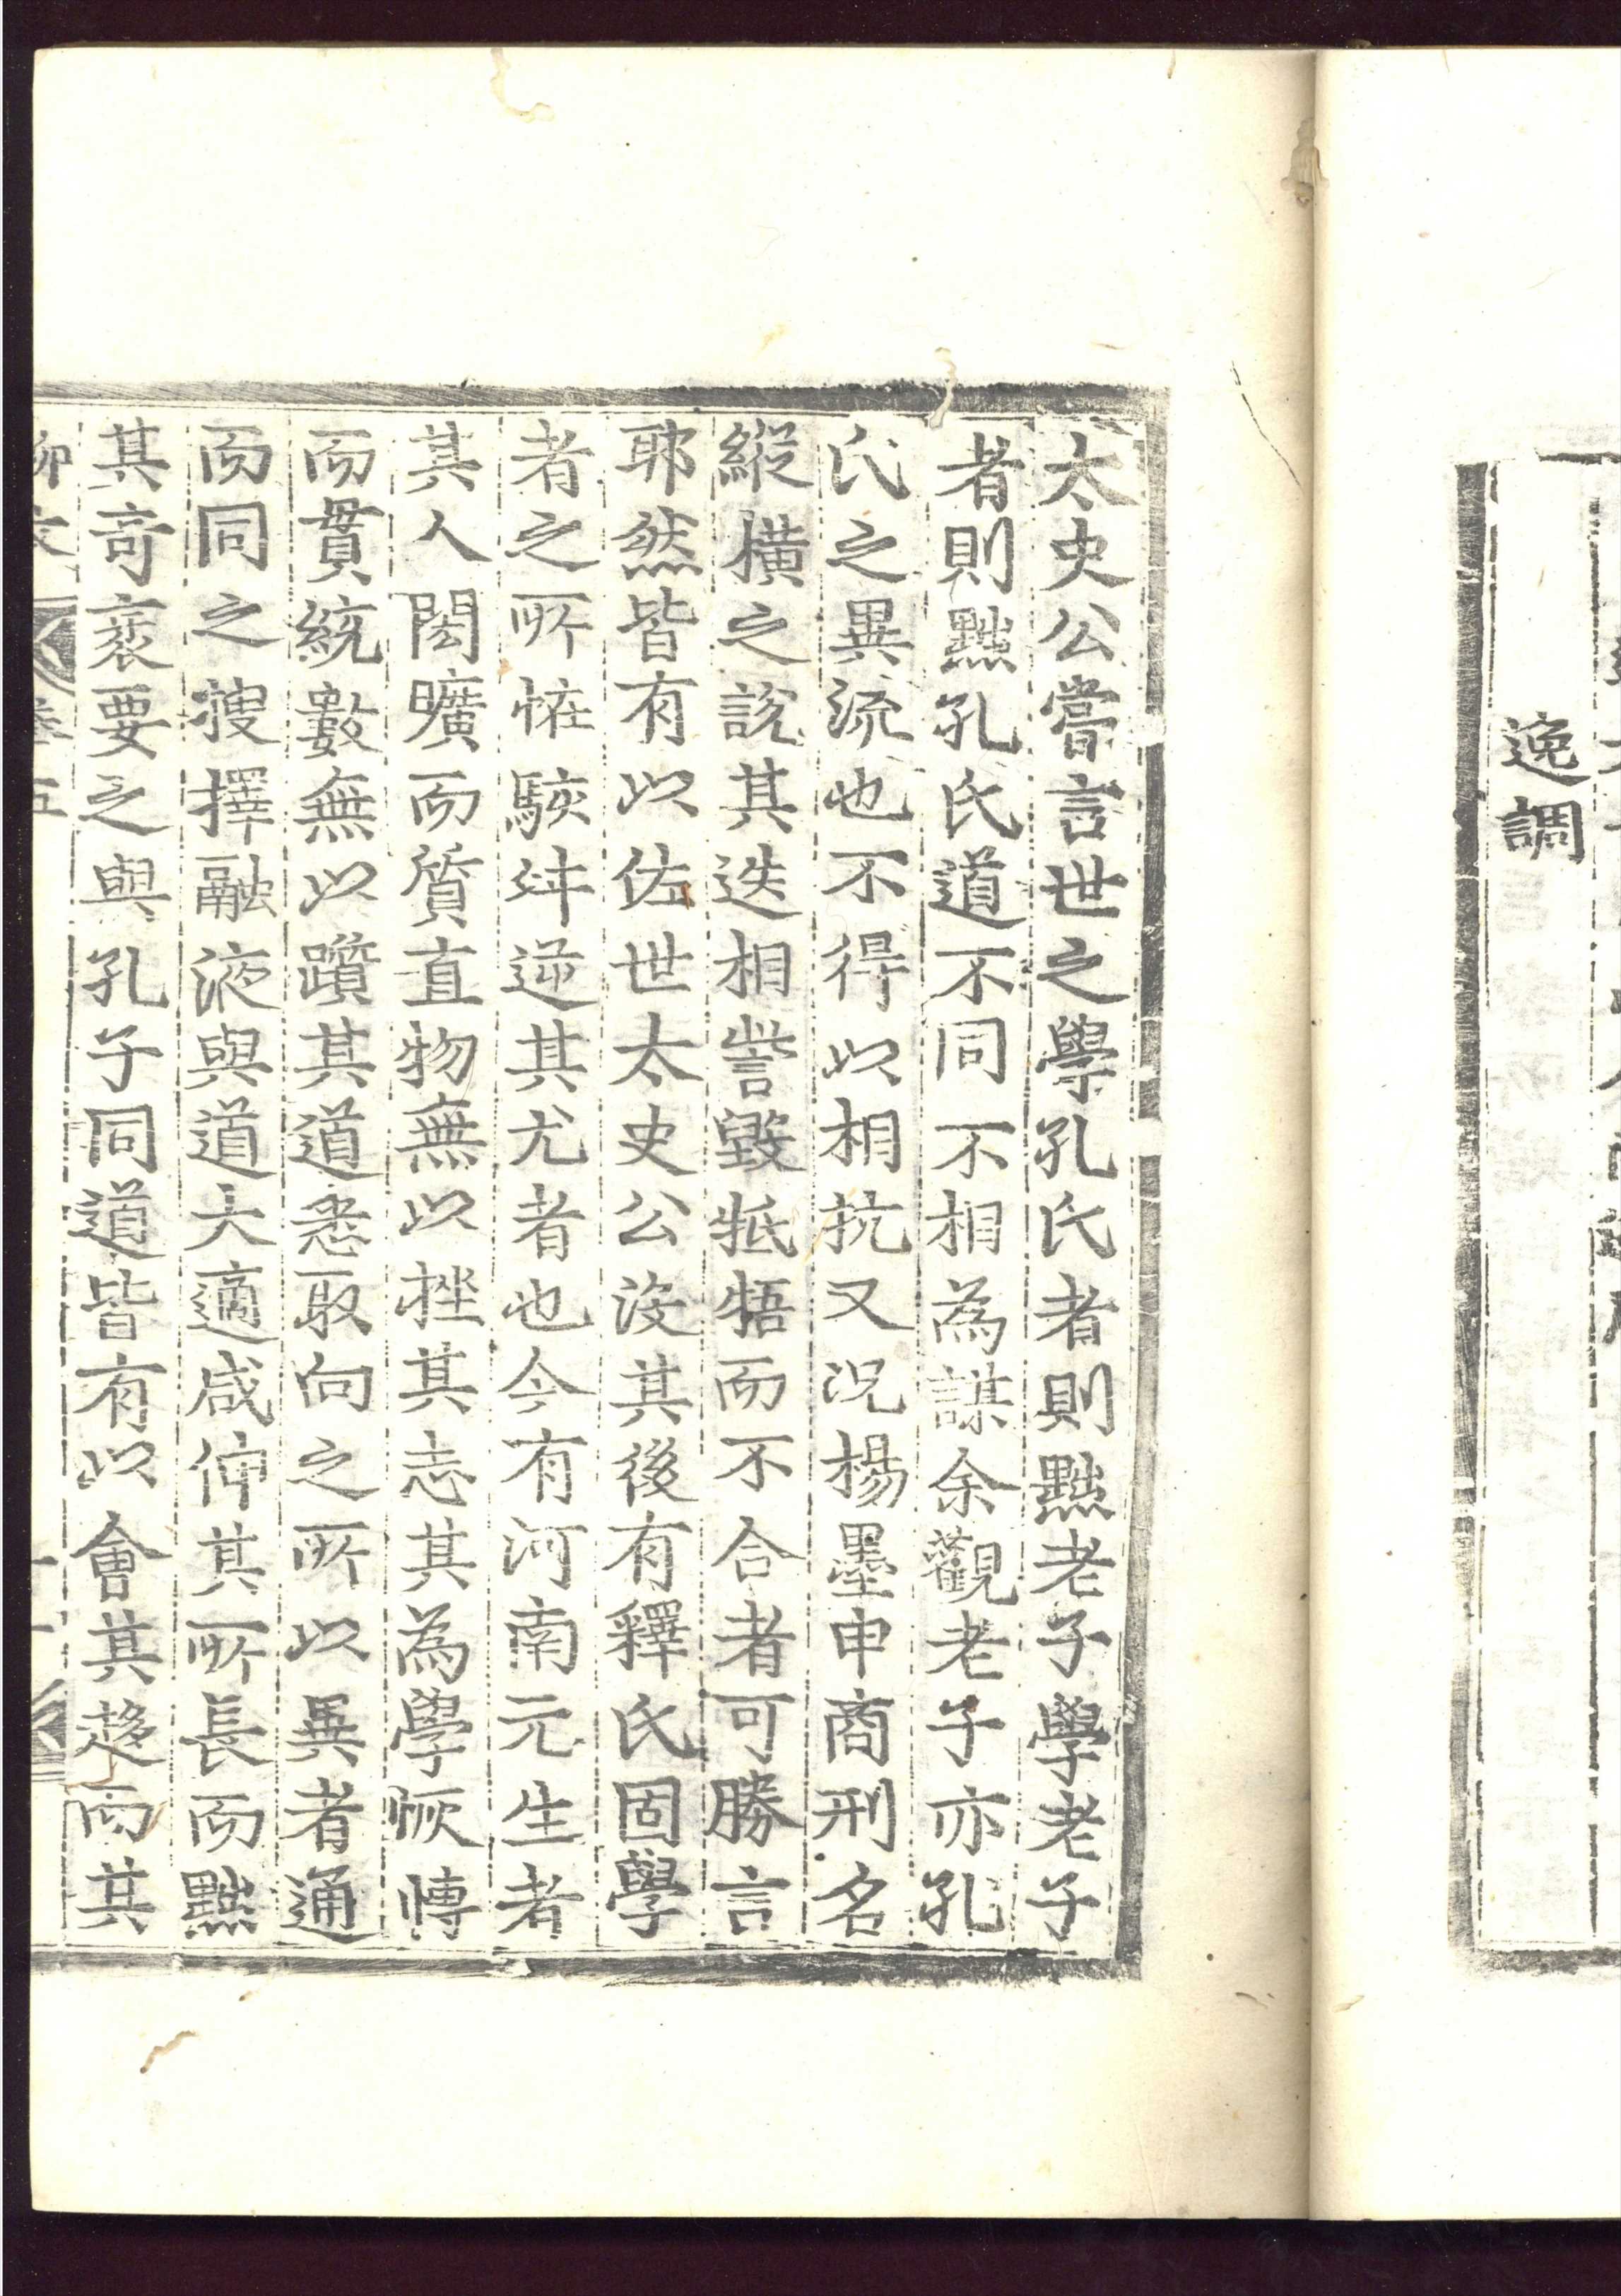 逸調
太史公嘗言世之學孔氏者則黜老子學老子
者則黜孔氏道不同不相為謀余觀老子亦孔
氏之異流也不得以相抗又況楊墨申商刑名
縱橫之說其迭相訾毀牴牾而不合者可勝言
耶然皆有以佐世太史公沒其後有釋氏固學
者之所恠駭舛逆其尤者也今有河南元生者
其人閎曠而質直物無以挫其志其為學恢博
而貫統數無以躓其道悉取向之所以異者通
而同之搜擇融液與道大適咸伸其所長而黜
其竒衺要之與孔子同道皆有以會其趍而其